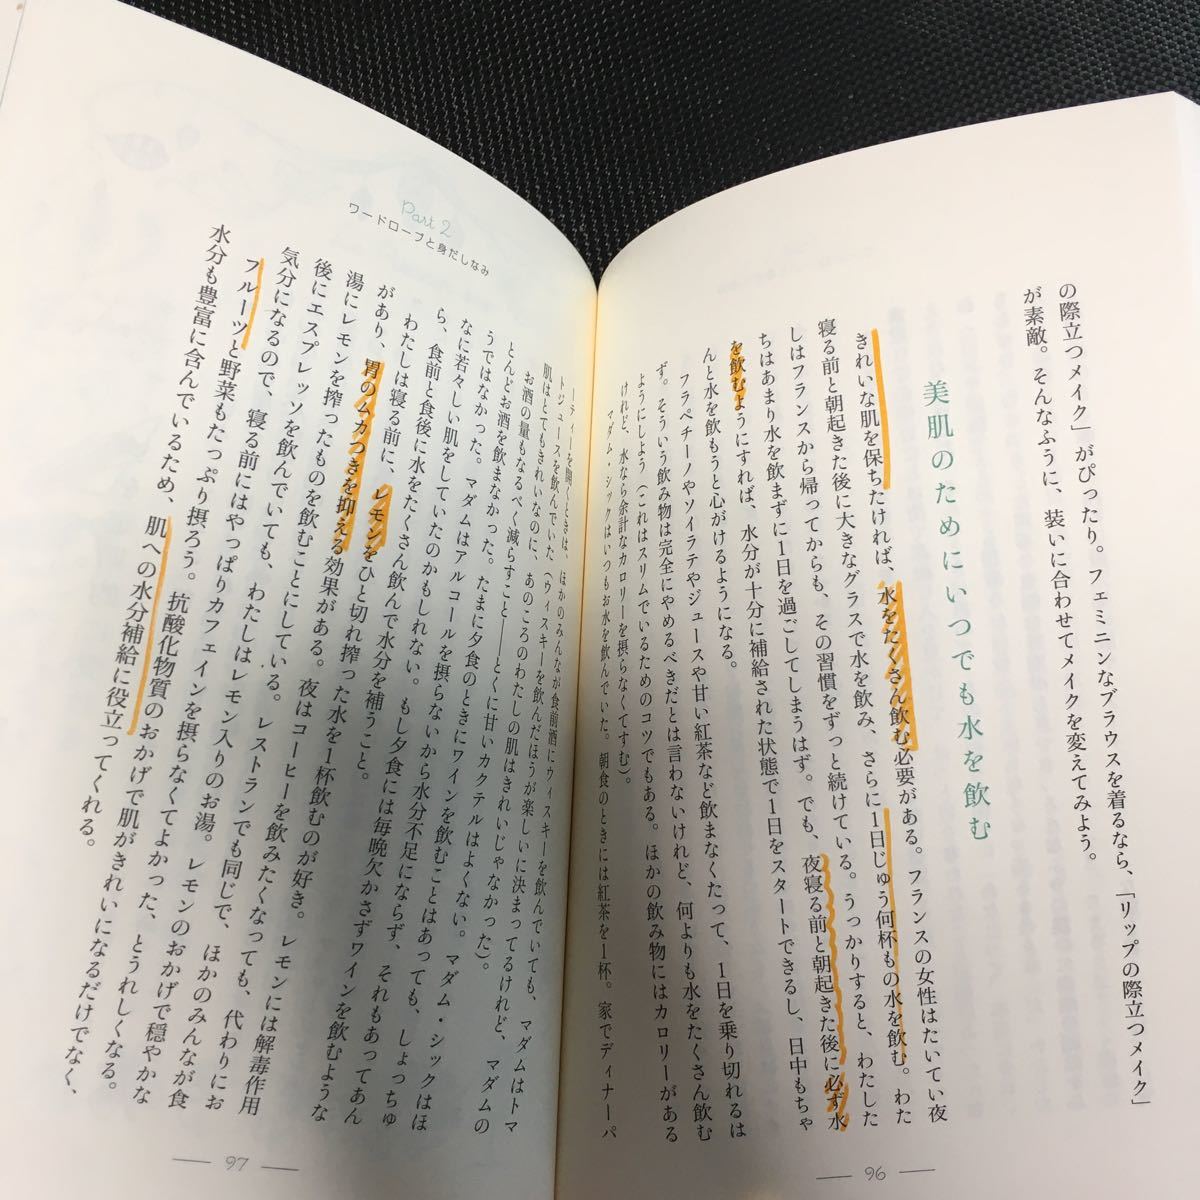 の際立つメイク」がぴったり。フェミニンなブラウスを着るなら、「リップの際立つメイク」
が素敵。そんなふうに、装いに合わせてメイクを変えてみよう。
美肌のためにいつでも水を飲む
きれいな肌を保ちたければ、水をたくさん飲む必要がある。フランスの女性はたいてい夜
寝る前と朝起きた後に大きなグラスで水を飲み、さらに1日じゅう何杯もの水を飲む。わた
しはフランスから帰ってからも、その習慣をずっと続けている。うっかりすると、わたした
ちはあまり水を飲まずに1日を過ごしてしまうはず。でも、夜寝る前と朝起きた後に必ず水
を飲むようにすれば、水分が十分に補給された状態で1日をスタートできるし、日中もちゃ
んと水を飲もうと心がけるようになる。
フラペチーノやソイラテやジュースや甘い紅茶など飲まなくたって、1日を乗り切れるは
ず。そういう飲み物は完全にやめるべきだとは言わないけれど、何よりも水をたくさん飲む
ようにしよう（これはスリムでいるためのコツでもある。ほかの飲み物にはカロリーがある
けれど、水なら余計なカロリーを摂らなくてすむ）。
マダム・シックはいつもお水を飲んでいた。朝食のときには紅茶を1杯。家でディナーパ
96
Part 2
ワードローブと身だしなみ
ーティーを開くときは、ほかのみんなが食前酒にウィスキーを飲んでいても、マダムはトマ
トジュースを飲んでいた（ウィスキーを飲んだほうが楽しいに決まってるけれど、マダムの
肌はとてもきれいなのに、あのころのわたしの肌はきれいじゃなかった）。
お酒の量もなるべく減らすこと――とくに甘いカクテルはよくない。マダム・シックはほ
とんどお酒を飲まなかった。たまに夕食のときにワインを飲むことはあっても、しょっちゅ
うではなかった。マダムはアルコールを摂らないから水分不足にならず、それもあってあん
なに若々しい肌をしていたのかもしれない。もし夕食には毎晩欠かさずワインを飲むような
ら、食前と食後に水をたくさん飲んで水分を補うこと。
わたしは寝る前に、レモンをひと切れ搾った水を1杯飲むのが好き。レモンには解毒作用
があり、胃のムカつきを抑える効果がある。夜はコーヒーを飲みたくなっても、代わりにお
湯にレモンを搾ったものを飲むことにしている。レストランでも同じで、ほかのみんなが食
後にエスプレッソを飲んでいても、わたしはレモン入りのお湯。レモンのおかげで穏やかな
気分になるので、寝る前にはやっぱりカフェインを摂らなくてよかった、とうれしくなる。
フルーツと野菜もたっぷり摂ろう。抗酸化物質のおかげで肌がきれいになるだけでなく、
水分も豊富に含んでいるため、肌への水分補給に役立ってくれる。
97